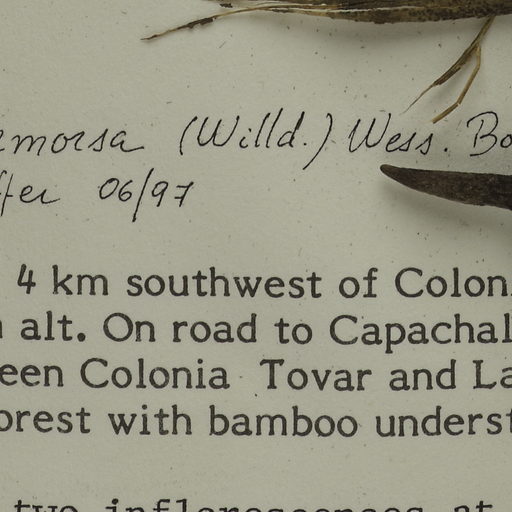 emorsa (Willd.) Wess. Bo
ffer 06/97
4 km southwest of Colon
alt. On road to Capachal
een Colonia Tovar and La
orest with bamboo underst
two inflorescences at